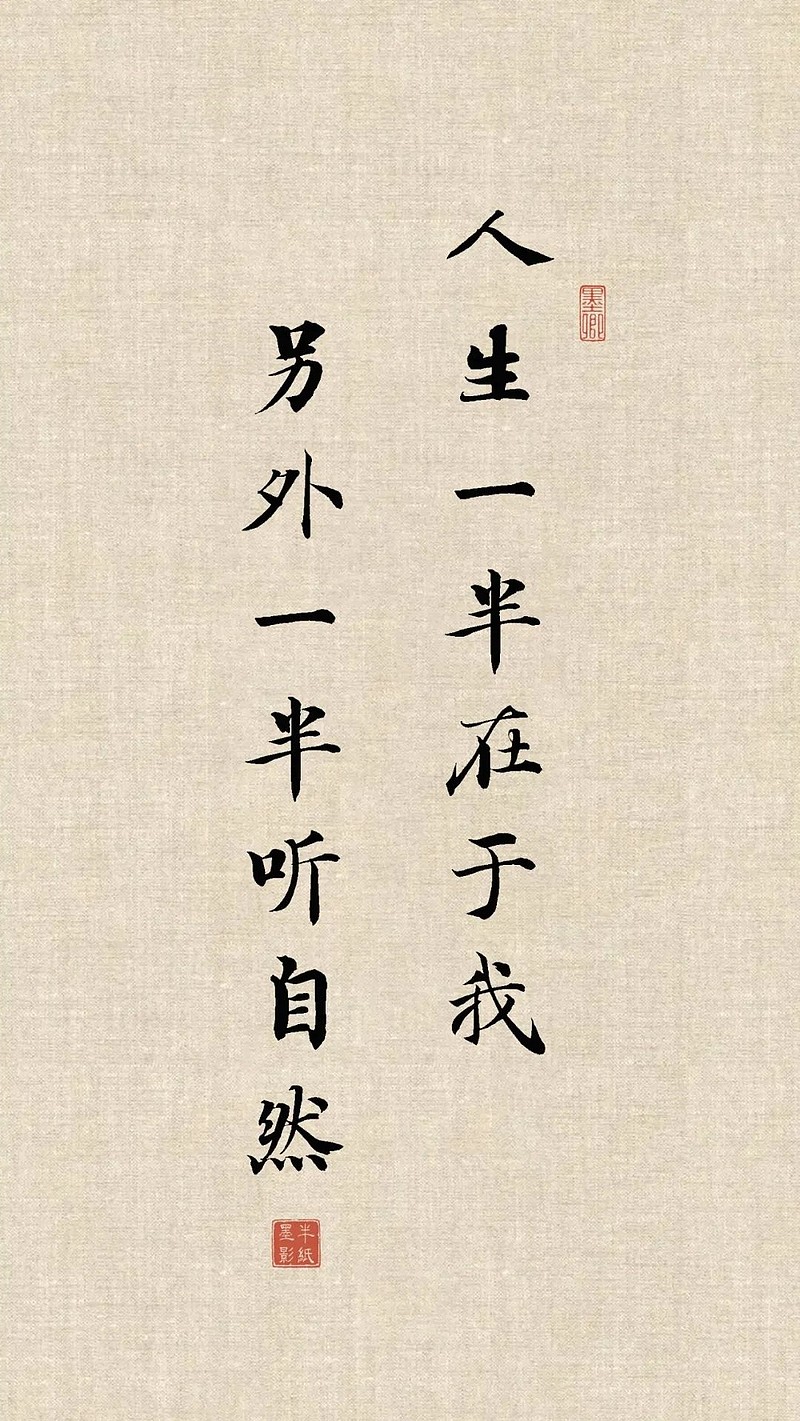 人生一半在于我
墨卿
另外一半听自然
半紙
墨影